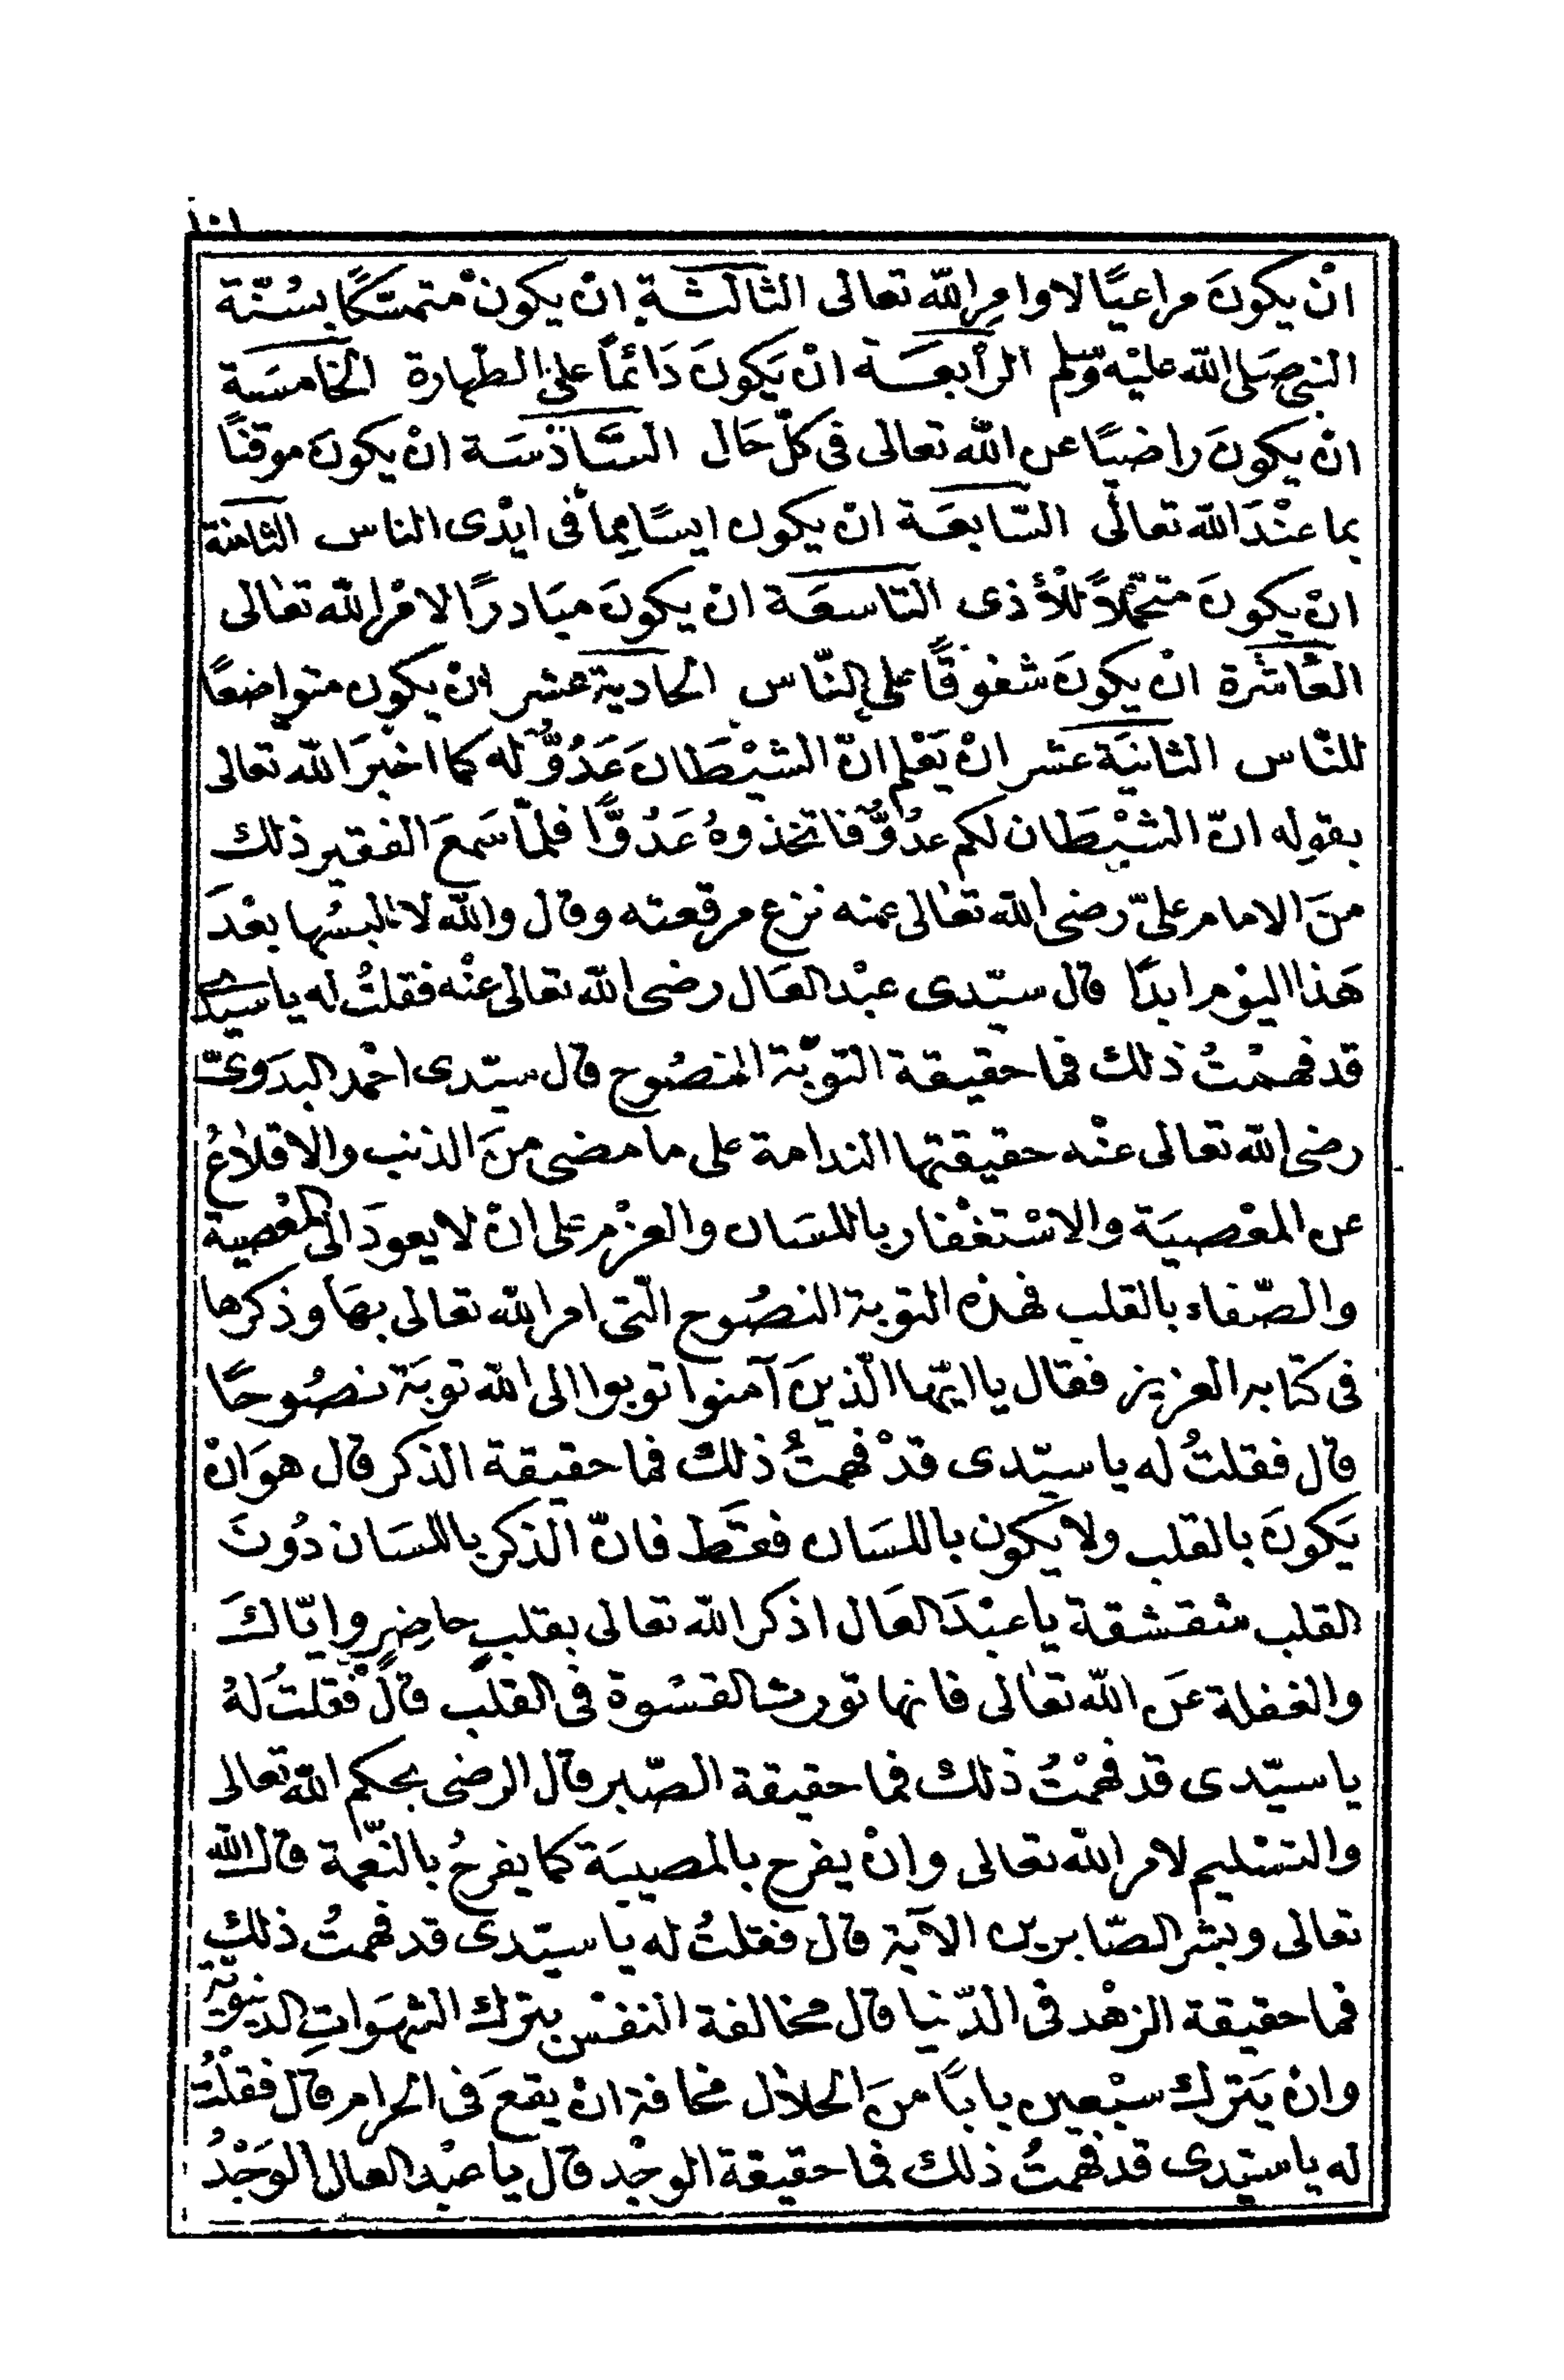 ١٠١
انْ يكونَ مراعيًا لاوامِرِ الله تعالى الثالثة انْ يكونْ متمسّكًا بسُنّة
النبى صَلى الله عليْه وسّلم الرابعَة انْ يَكونَ دَائمًا على الطّهارة الخامسَة
انْ يكونَ راضيًا عن الله تعالى فى كلّ حَال السَّادْسَة انْ يكونَ موقنًا
بما عنْدَ الله تعالى السّابعَة انْ يكون ايسًا مِمّا فى ايْدى الناس الثامنة
انْ يكونَ متحمّلاً للْأذى التاسعَة انْ يكونَ مبَادرًا لامْرِ الله تعٰالى
العَاشرة انْ يكونَ شفوقًا على النّاس الحادية عشر انْ يكون متواضعًا
للنّاس الثانيَة عشر انْ يَعْلم انّ الشيْطَانَ عَدُوٌّ له كما اخبَرَ الله تعالى
بقوله انّ الشيْطَان لكم عدُوٌّ فاتخذوهُ عَدُوًّا فلمّا سَمعَ الفقير ذلك
منَ الامام علىّ رضى الله تعٰالى عنه نزع مرقعته وقال والله لا البسُها بعْدَ
هَذا اليوْم ابدًا قال سيّدى عبْد العَال رضى الله تعالى عنْه فقلتُ له يا سيّدى
قد فهمْتُ ذلك فما حقيقة التوبَة النصُوح قال سيّدى احْمد البدَوىّ
رضى الله تعالى عنْه حقيقتها الندامة على ما مضى منَ الذنب والاقلاٰعُ
عن المعْصيَة والاسْتغْفار باللسَان والعزْم على انْ لا يعودَ الى المعْصية
والصّفاء بالقلب فهذه التوبة النصُوح الّتى امر الله تعالى بهَا وذكرها
فى كتابه العزيز فقال يا ايّها الّذينَ آمنوا توبوا الى الله توبَة نصُوحًا
قال فقلتُ له يا سيّدى قدْ فهمتُ ذلك فما حقيقة الذكر قال هوَ انْ
يَكونَ بالقلب ولا يَكون باللسَان فقَط فانّ الذكر باللسَان دُونَ
القلب شقشقة يا عبْدَ العَال اذكر الله تعالى بقلبٍ حاضِرٍ وايّاكَ
والغفلة عَن الله تعٰالى فانها تورث القسْوة فى القلب قال فقلتُ لهُ
يا سيّدى قد فهمْتُ ذلك فما حقيقة الصّبر قال الرضى بحكم الله تعالى
والتسْليم لامر الله تعالى وانْ يفرح بالمصيبَة كما يفرحُ بالنّعمة قال الله
تعالى وبشر الصّابرين الآية قال فقلتُ له يا سيّدى قد فهمتُ ذلك
فما حقيقة الزهْد فى الدّنيا قال مخالفة النفسْ بترك الشهوَاتِ الدنيويّة
وانْ يَترك سبْعين بابًا منَ الحلاٰل مخافة انْ يقعَ فى الحرام قال فقلْتُ
له يا سيّدى قد فهمتُ ذلك فما حقيقة الوجْد قال يا عبْد العال الوَجْدُ